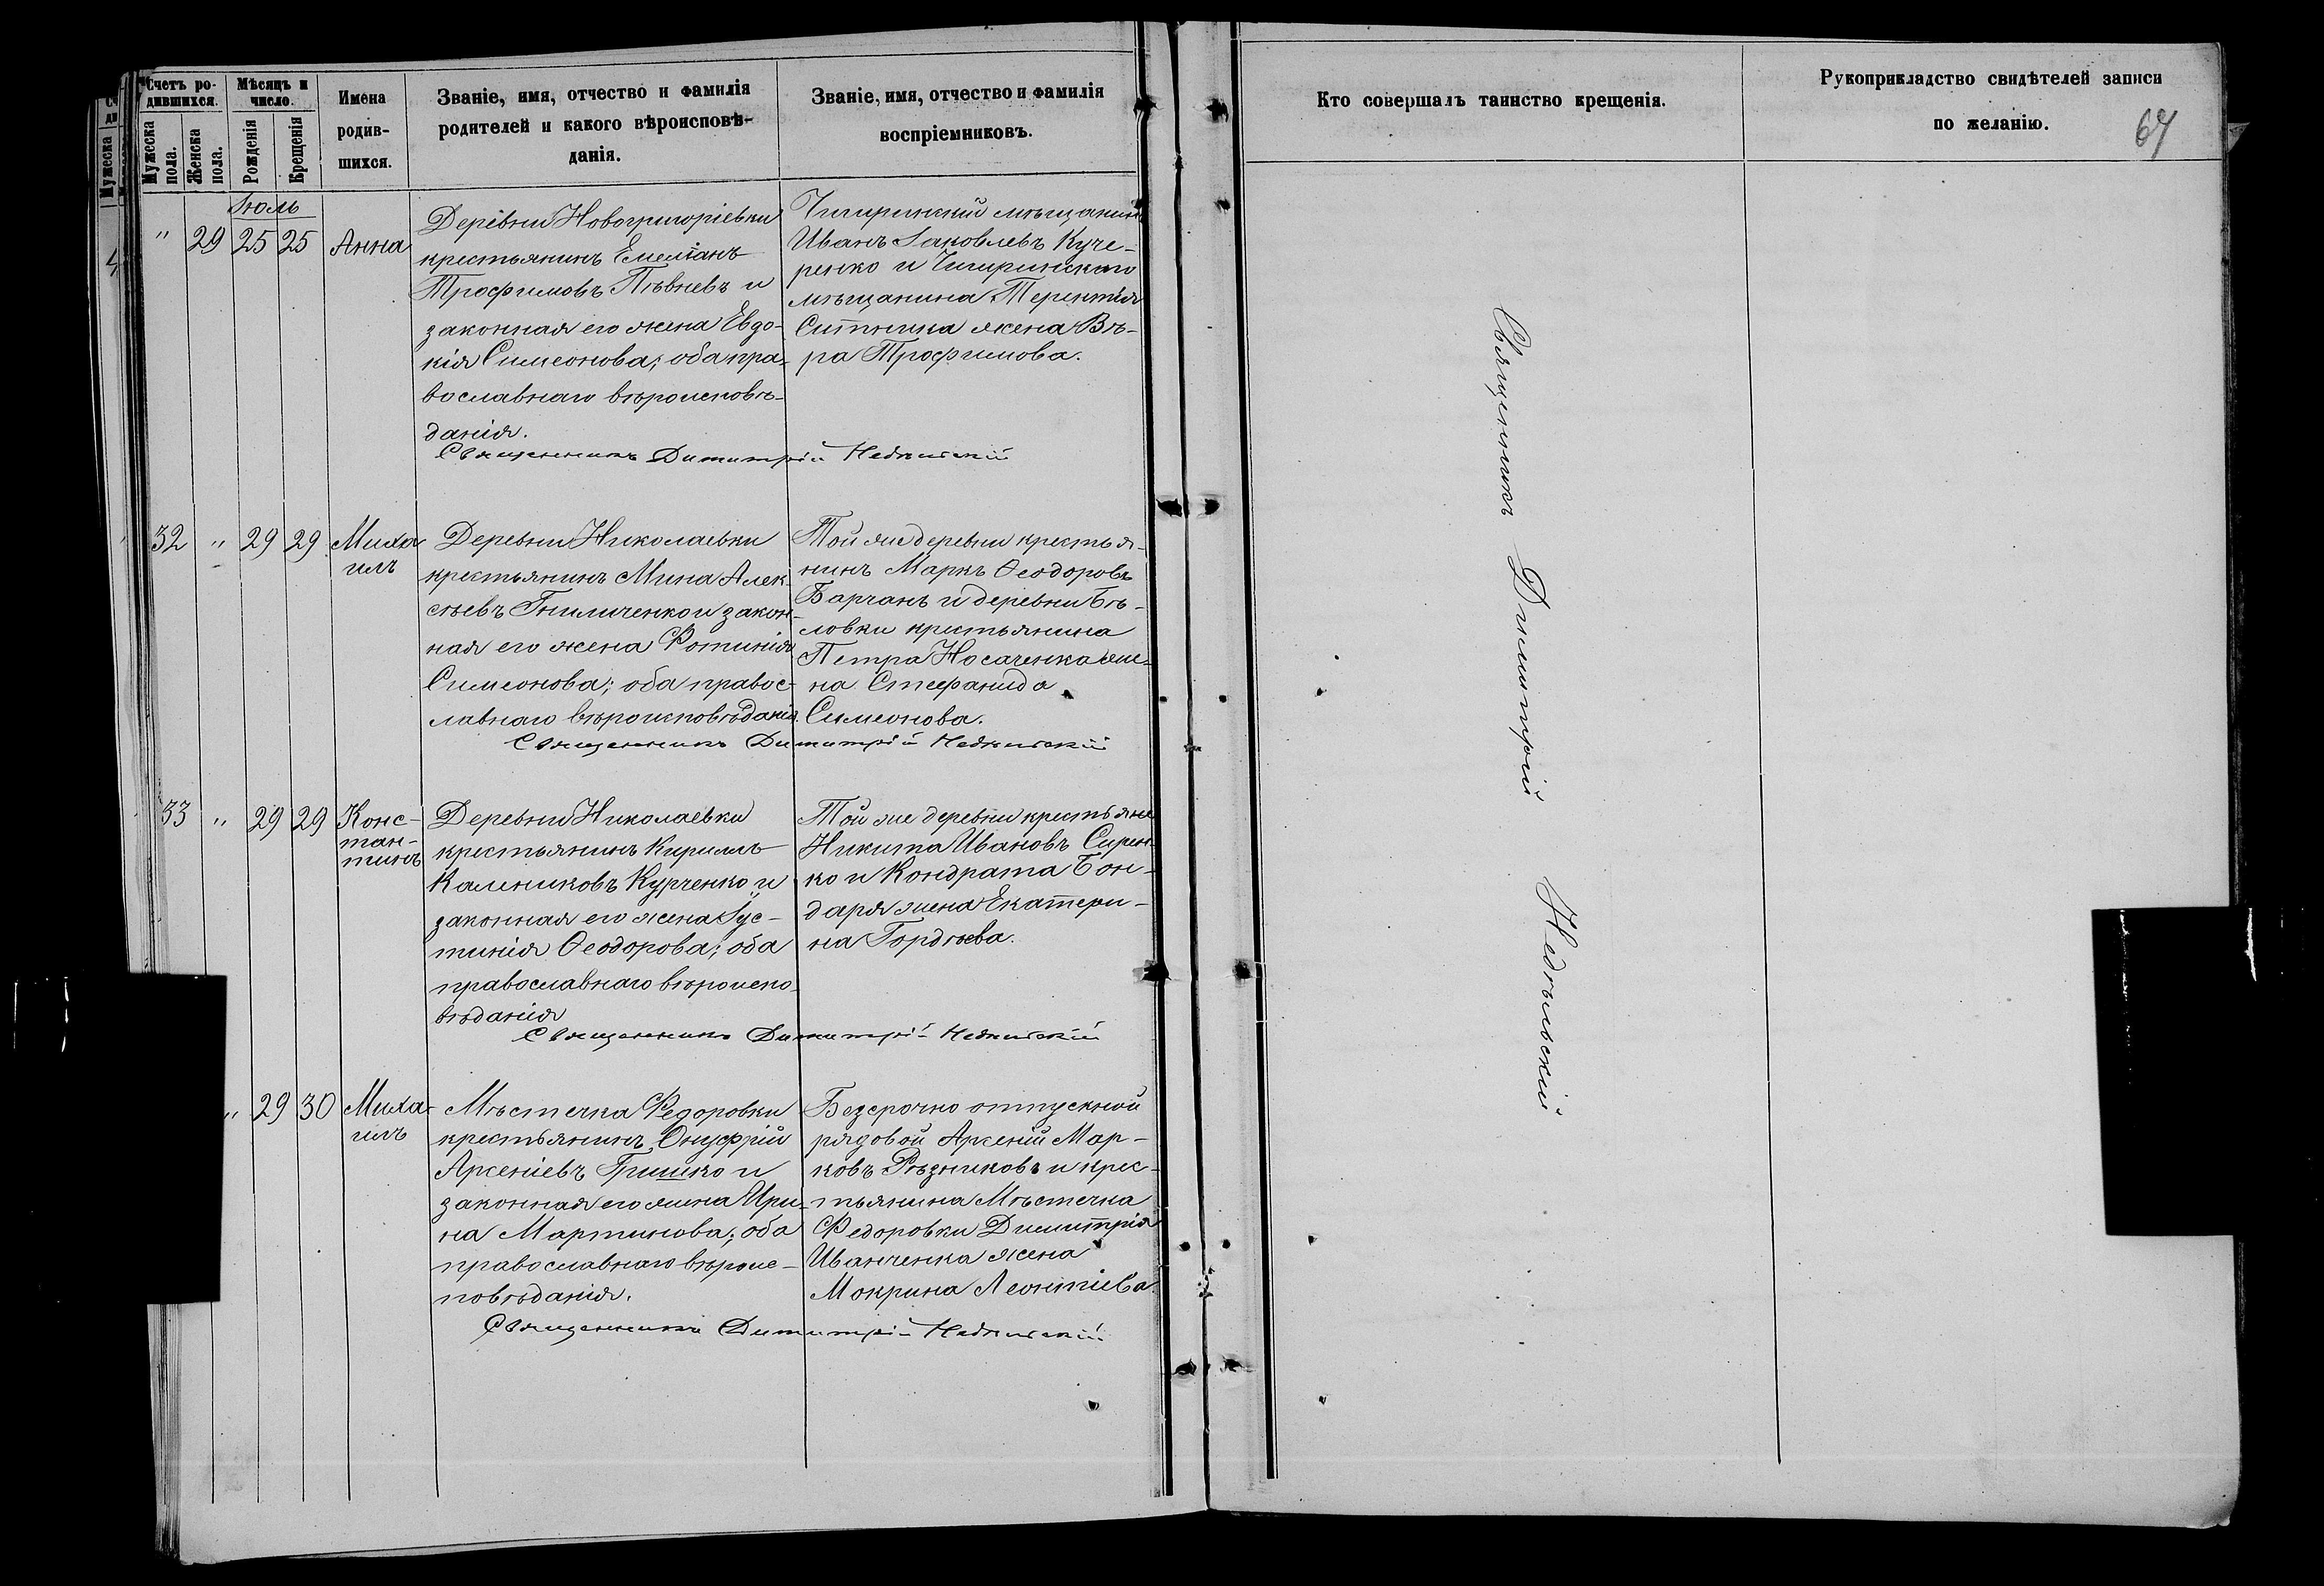 Счетъ ро-
дившихся.
Мѣсяцъ и
число.
Мужеска
пола.
Женска
пола.
Рожденія
Крещенія
Имена
родив-
шихся.
Званіе, имя, отчество и фамилія
родителей и какого вѣроисповѣ-
данія.
Званіе, имя, отчество и фамилія
воспріемниковъ.
Кто совершалъ таинство крещенія.
Рукоприкладство свидѣтелей записи
по желанію.
Іюль
" 29 25 25 Анна
Деревни Новогригоріевки
крестьянинъ Емеліанъ
Трофимовъ Пѣвневъ и
законная его жена Евдо-
кія Симеонова; оба пра-
вославнаго вѣроисповѣ-
данія.
Чигиринскій мѣщанинъ
Иванъ Іаковлевъ Куче-
ренко и Чигиринскаго
мѣщанина Терентія
Ситника жена Вѣ-
ра Трофимова.
Священникъ Димитрій Недѣльскій
32 " 29 29 Миха
илъ
Деревни Николаевки
крестьянинъ Мина Алек-
сѣевъ Гниличенко и закон-
ная его жена Фотинія
Симеонова; оба правос-
лавнаго вѣроисповѣданія.
Той же деревни крестья-
нинъ Маркъ Ѳеодоровъ
Барчанъ и деревни Бѣ-
ловки крестьянина
Петра Носаченка же-
на Стефанида
Симеонова.
Священникъ Димитрій Недѣльскій
33 " 29 29 Конс-
тан-
тинъ
Деревни Николаевки
крестьянинъ Кириллъ
Калениковъ Курченко и
законная его жена Іус-
тинія Ѳеодорова; оба
православнаго вѣроиспо-
вѣданія
Той же деревни крестьяне
Никита Ивановъ Сирен-
ко и Кондрата Бон-
даря жена Екатери-
на Гордѣева.
Священникъ Димитрій Недѣльскій
" 29 30 Миха-
илъ
Мѣстечка Федоровки
крестьянинъ Онуфрій
Арсеніевъ Гришко и
законная его жена Ири-
на Мартинова; оба
православнаго вѣроис-
повѣданія.
Безсрочно отпускной
рядовой Арсеній Мар-
ковъ Рѣзниковъ и крес-
тьянина Мѣстечка
Федоровки Димитрія
Иванченка жена
Мокрина Леонтіева.
Священникъ Димитрій Недѣльскій
Священникъ Димитрій Недѣльскій